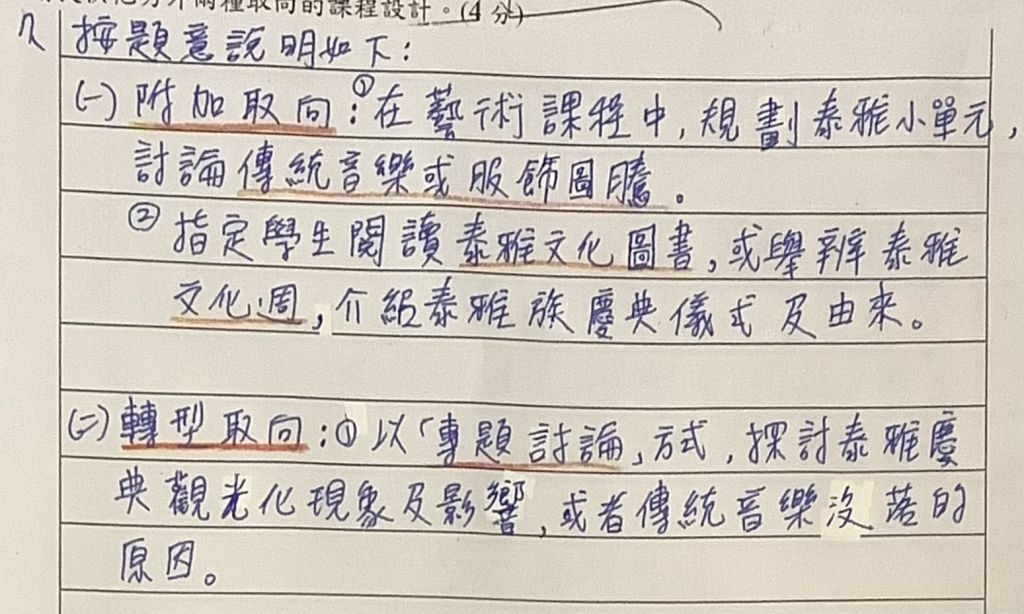 另外兩種取向的課程設計。(4分)
按題意說明如下：
(一)附加取向：①在藝術課程中，規劃泰雅小單元，
討論傳統音樂或服飾圖騰。
②指定學生閱讀泰雅文化圖書，或舉辦泰雅
文化週，介紹泰雅族慶典儀式及由來。
(二)轉型取向：①以「專題討論」方式，探討泰雅慶
典觀光化現象及影響，或者傳統音樂沒落的
原因。